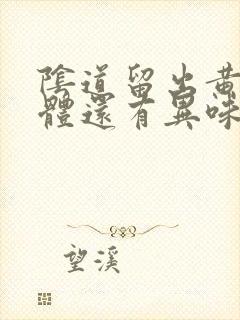 陰道留出黃
體還有異味
望溪